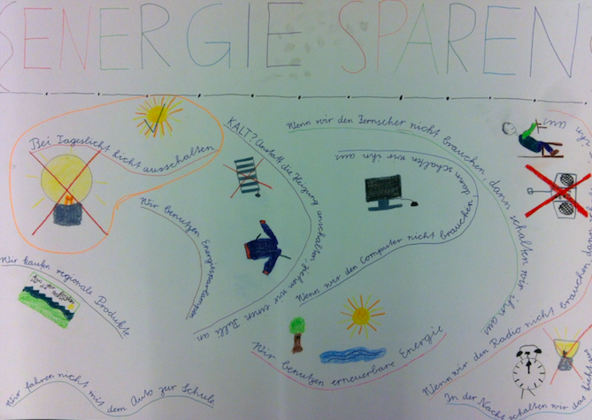 ENERGIE SPAREN
Bei Tageslicht Licht ausschalten
KALT? Anstatt die Heizung anzuschalten, ziehen wir einen Pulli an
Wenn wir den Fernseher nicht brauchen, dann schalten wir ihn aus
Wir benutzen Energiesparlampen
Wenn wir den Computer nicht brauchen, dann schalten wir ihn aus
Wir kaufen regionale Produkte
Wir benutzen erneuerbare Energie
Wenn wir den Radio nicht brauchen, dann
ihn aus
Wir fahren nicht mit dem Auto zur Schule
In der Nacht schalten wir das Licht aus